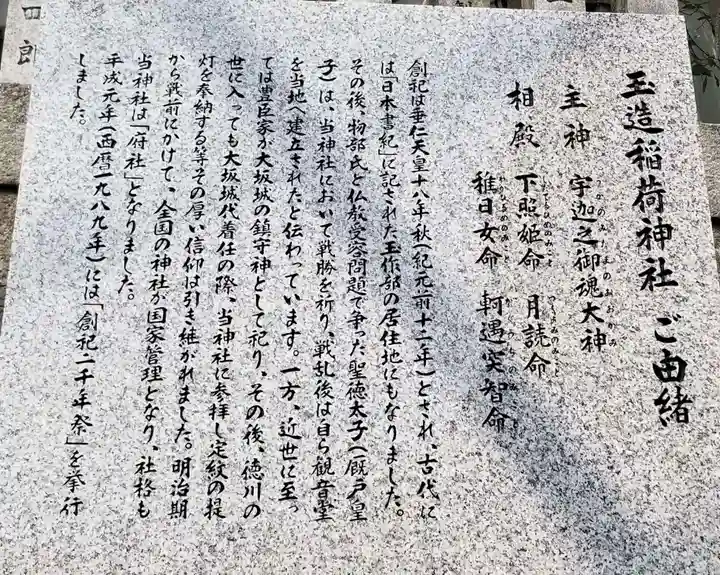 玉造稲荷神社 ご由緒
主神 宇迦之御魂大神
うかのみたまのおおかみ
相殿 下照姫命 月読命
したてるひめのみこと つきよみのみこと
稚日女命 軻遇突智命
わかひるめのみこと かぐつちのみこと
創祀は垂仁天皇十八年秋(紀元前十二年)とされ、古代に
は「日本書紀」に記された玉作部の居住地にもなりました。
その後、物部氏と仏教受容問題で争った聖徳太子(厩戸皇
子)は、当神社において戦勝を祈り、戦乱後は自ら観音堂
を当地へ建立されたと伝わっています。一方、近世に至っ
ては豊臣家が大坂城の鎮守神として祀り、その後、徳川の
世に入っても大坂城代着任の際、当神社に参拝し定紋の提
灯を奉納する等その厚い信仰は引き継がれました。明治期
から戦前にかけて、全国の神社が国家管理となり、社格も
当神社は「府社」となりました。
平成元年(西暦一九八九年)には「創祀二千年祭」を挙行
しました。
郎